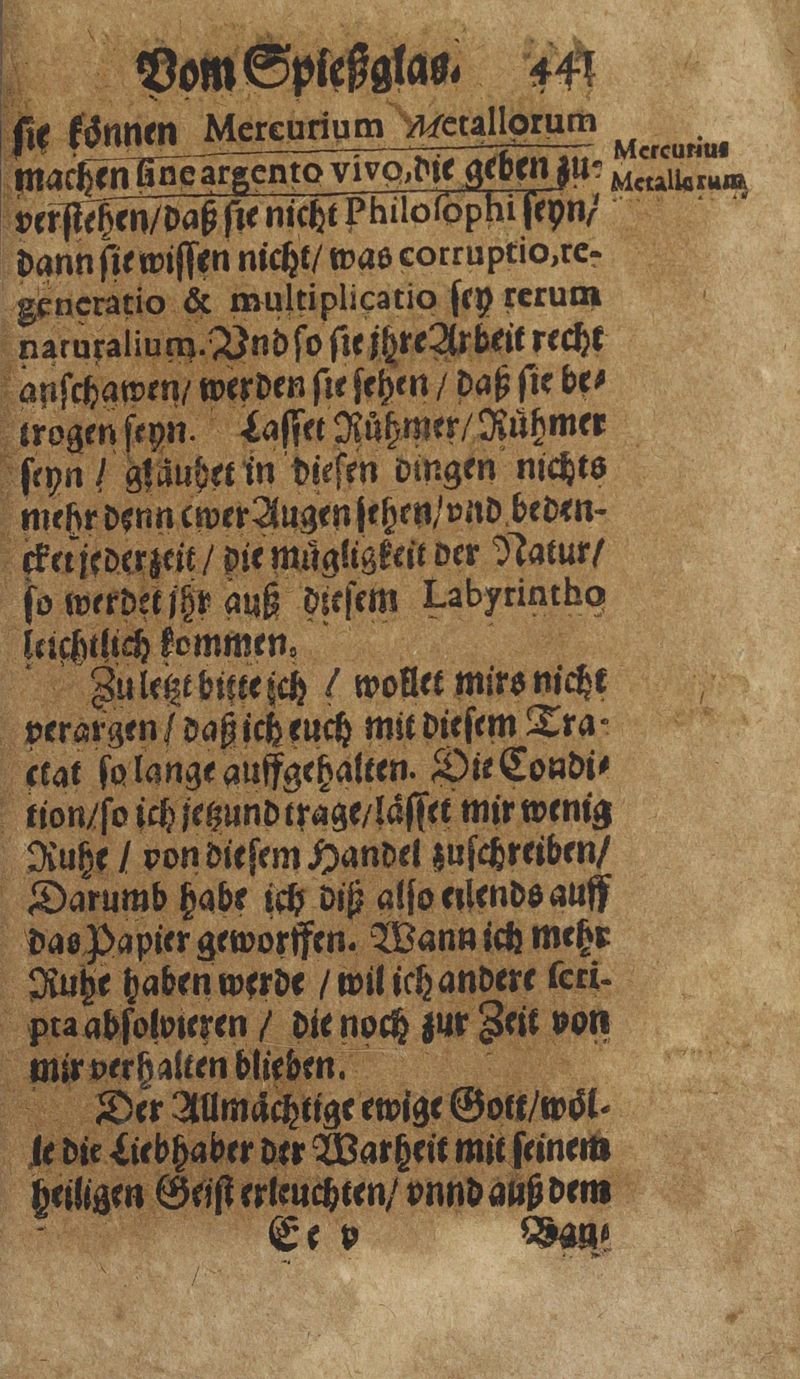 Vom Spießglas. 441
sie können Mercurium Metallorum
machen sine argento vivo, die geben zu-
verstehen/ daß sie nicht Philosophi seyn/
dann sie wissen nicht/ was corruptio, re-
generatio & multiplicatio sey rerum
naturalium. Vnd so sie jhre Arbeit recht
anschawen/ werden sie sehen / daß sie be-
trogen seyn. Lasset Rühmer/ Rühmer
seyn / gläubet in diesen dingen nichts
mehr denn ewer Augen sehen/ vnd beden-
cket jederzeit / die mügligkeit der Natur/
so werdet jhr auß diesem Labyrintho
leichtlich kommen.
Zu letzt bitte jch / wollet mirs nicht
verargen / daß ich euch mit diesem Tra-
ctat so lange auffgehalten. Die Condi-
tion/ so ich jetzund trage/ lässet mir wenig
Ruhe / von diesem Handel zuschreiben/
Darumb habe ich diß also eilends auff
das Papier geworffen. Wann ich mehr
Ruhe haben werde / wil ich andere scri-
pta absolvieren / die noch zur Zeit von
mir verhalten blieben.
Der Allmächtige ewige Gott/ wöl-
le die Liebhaber der Warheit mit seinem
heiligen Geist erleuchten/ vnnd auß dem
Ee v Ban-
Mercurius
Metallorum